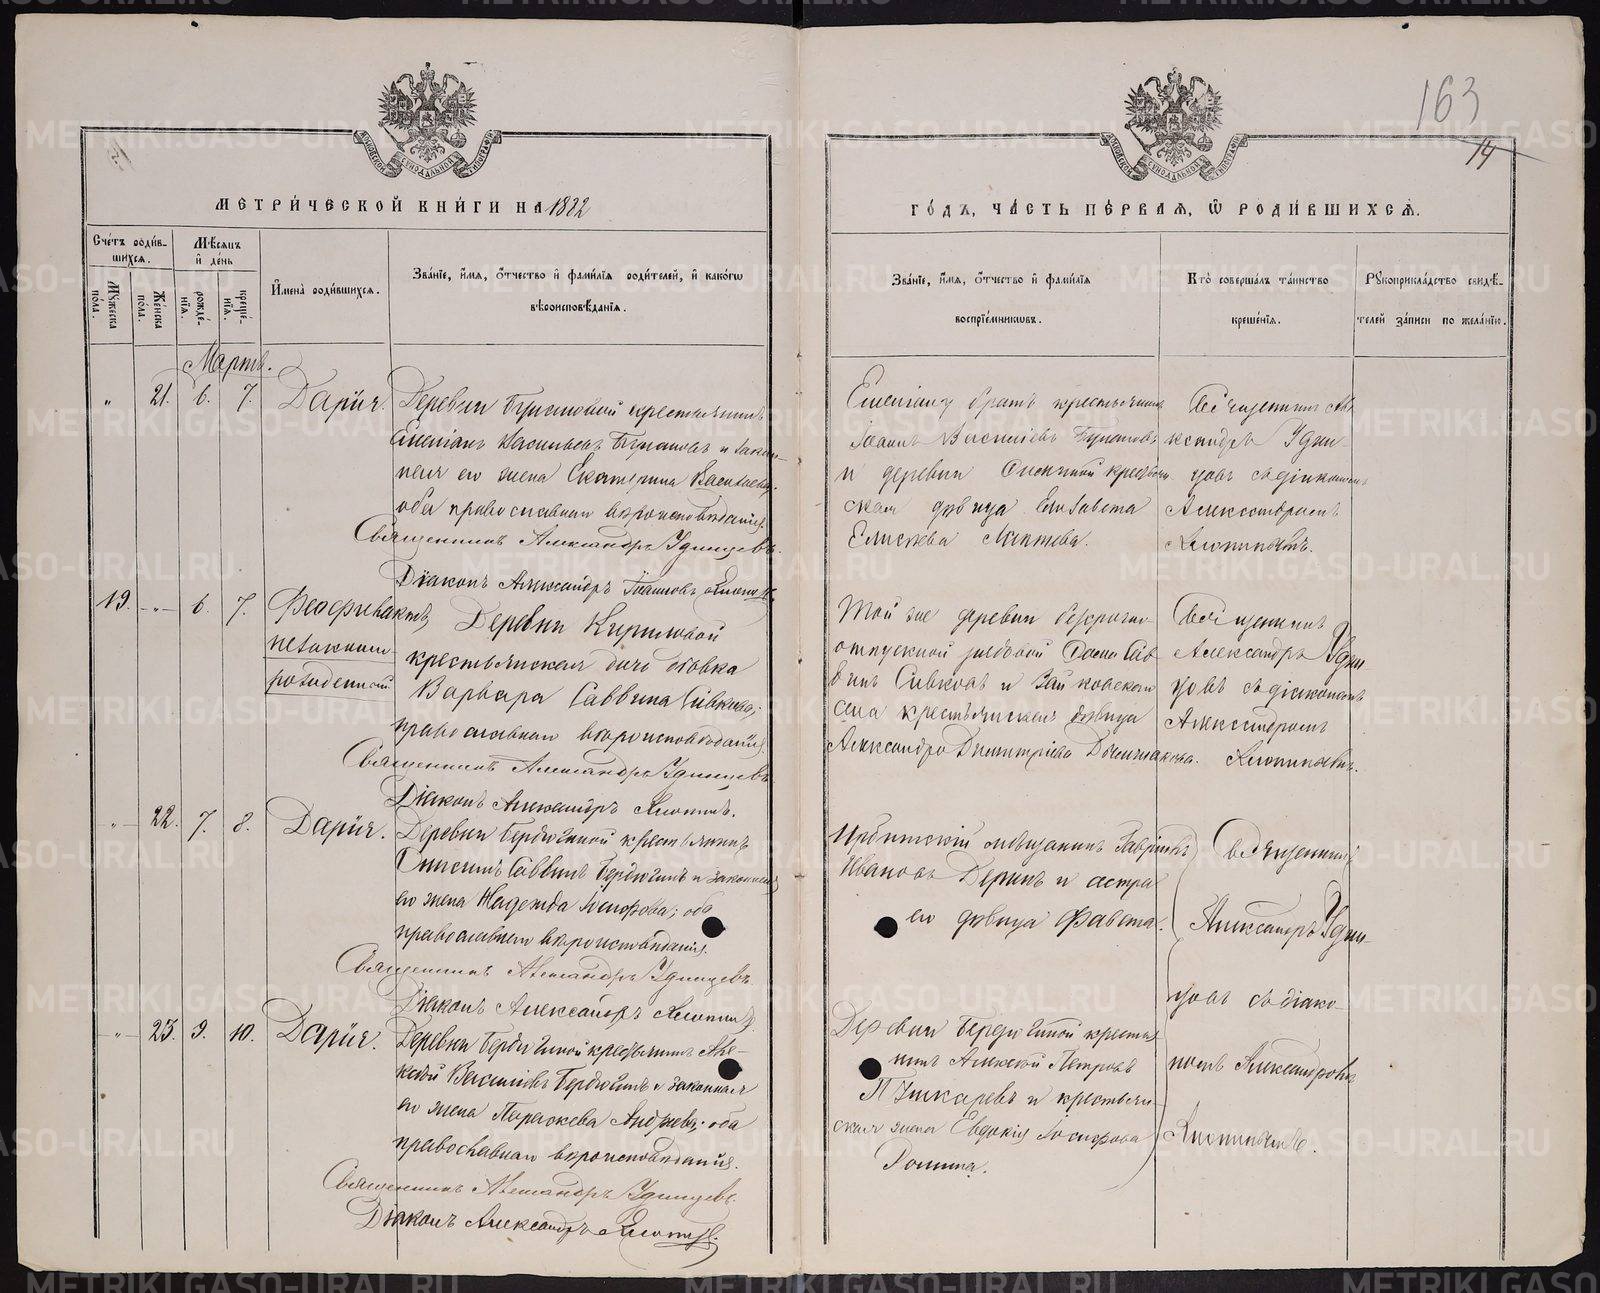 163
14
МЕТРИЧЕСКОЙ КНИГИ НА 1882
ГОДЪ, ЧАСТЬ ПЕРВАЯ, Ѡ РОДИВШИХСЯ.
Счетъ родив-
шихся.
Мужеска пола.
Женска пола.
Мѣсяцъ
и день
рожде-
нія.
креще-
нія.
Имена родившихся.
Званіе, имя, отчество и фамилія родителей, и какогѡ
вѣроисповѣданія.
Званіе, имя, отчество и фамилія
воспріемникѡвъ.
Кто совершалъ таинство
крещенія.
Рукоприкладство свидѣ-
телей записи по желанію.
Мартъ.
" 21. 6. 7. Дарія.
Деревни крестьянинъ
Васильевъ и закон-
ная его жена Екатерина Васильева,
оба православнаго вѣроисповѣданія.
Священникъ Александръ Удинцевъ.
Діаконъ Александръ Іоанновъ
братъ крестьянинъ
Іоаннъ Васильевъ
и деревни крестьян-
ская дѣвица Елизавета
Елисѣева Лаптева.
Священникъ Але-
ксандръ Удин-
цовъ съ діакономъ
Александромъ
19. " 6. 7. Феофилактъ,
незаконно-
рожденный.
Деревни Кириловой
крестьянская дочь дѣвка
Варвара Саввина Сивкова;
православнаго вѣроисповѣданія.
Священникъ Александръ Удинцевъ
Діаконъ Александръ
Той же деревни безсрочно-
отпускной рядовой Сав-
винъ Сивковъ и Зайковскаго
села крестьянская дѣвица
Александра Димитріева
Священникъ
Александръ Удин-
цовъ съ діакономъ
Александромъ
" 22. 7. 8. Дарія.
Деревни Бердюгиной крестьянинъ
Саввинъ Бердюгинъ и законная
его жена Надежда Іосифова; оба
православнаго вѣроисповѣданія.
Священникъ Александръ Удинцевъ.
Діаконъ Александръ
Ирбитскій мѣщанинъ Гавріилъ
Ивановъ и сестра
его дѣвица
Священникъ
Александръ Удин-
цовъ съ діако-
номъ Александромъ
" 23. 9. 10. Дарія.
Деревни Бердюгиной крестьянинъ Але-
ксѣй Васильевъ Бердюгинъ и законная
его жена Параскева Андреева; оба
православнаго вѣроисповѣданія.
Священникъ Александръ Удинцевъ.
Діаконъ Александръ
Деревни Бердюгиной крестья-
нинъ Алексѣй Петровъ
Пушкаревъ и крестьян-
ская жена Евдокія Іосифова
METRIKI.GASO-URAL.RU